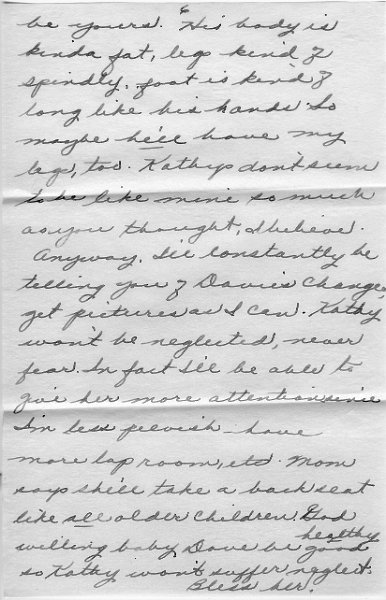 6
be yours. His body is
kinda fat, legs kind of
spindly, foot is kind of
long like his hands. So
maybe he'll have my
legs, too. Kathy's don't seem
to be like mine so much
as you thought, I believe.
Anyway, I'll constantly be
telling you of Davie's changes
get pictures as I can. Kathy
won't be neglected, never
fear. In fact I'll be able to
give her more attention since
I'm less peevish - have
more lap room, etc. Mom
says she'll take a back seat
like all older children. God
willing baby Dave be healthy good
so Kathy won't suffer neglect.
Bless her.